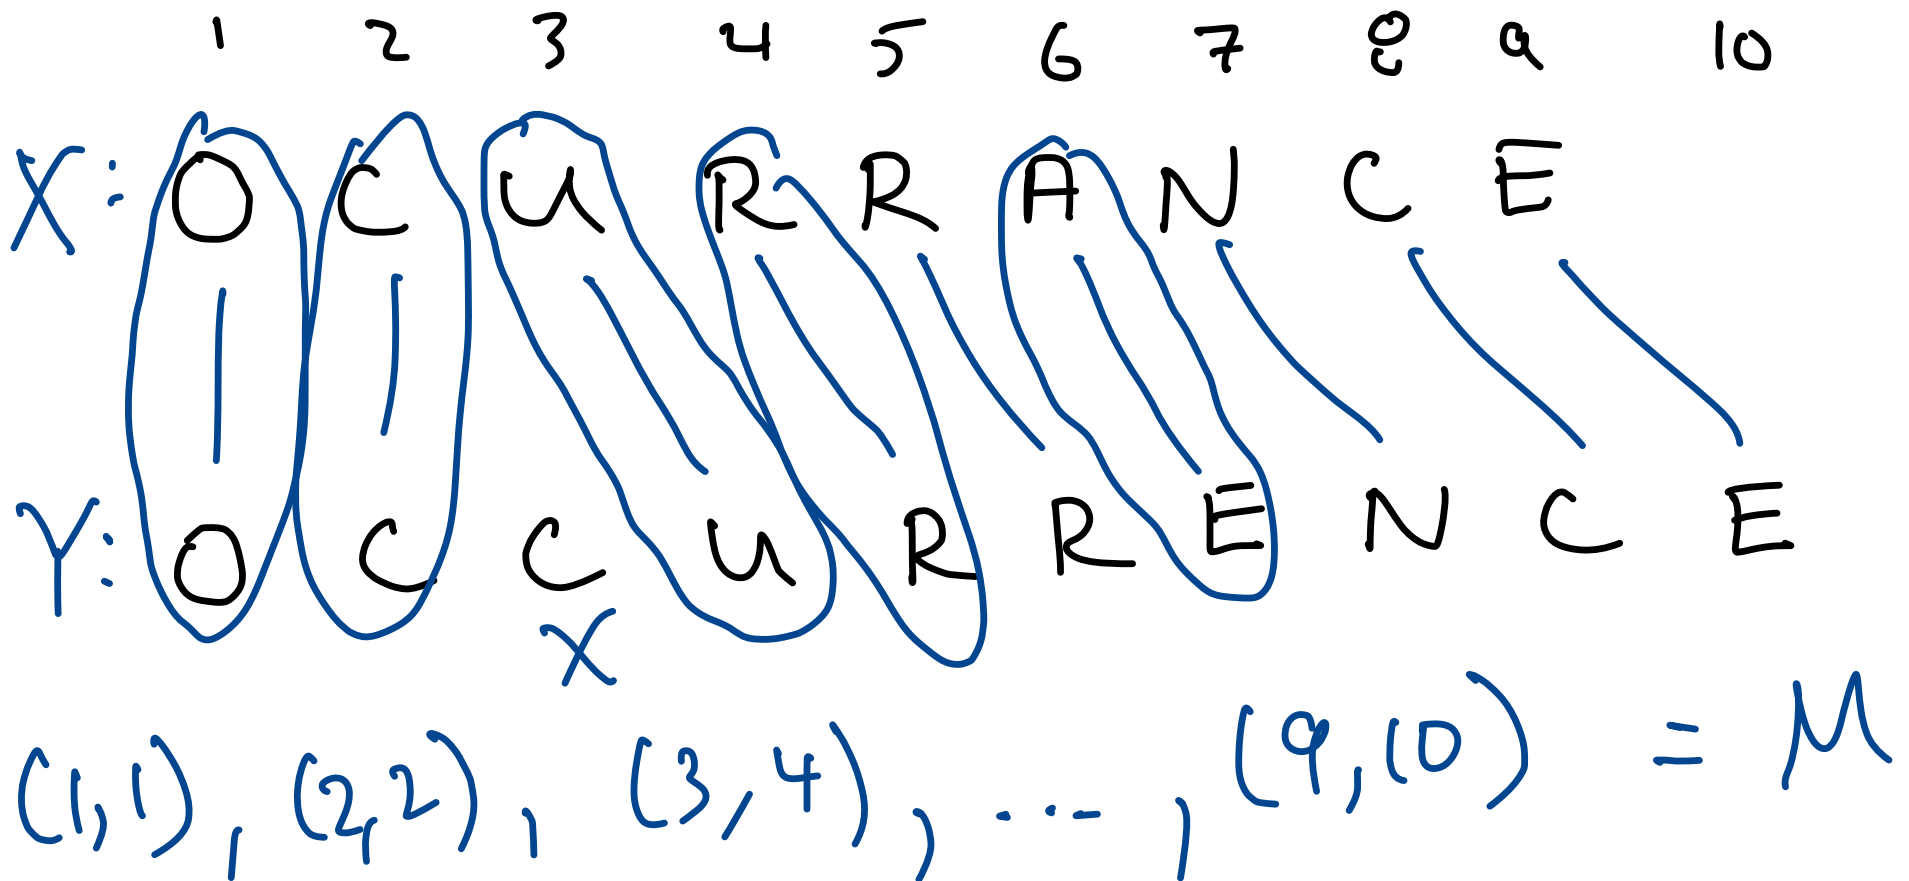 1 2 3 4 5 6 7 8 9 10
X: O C U R R A N C E
Y: O C C U R R E N C E
X
(1,1), (2,2), (3,4), ..., (9,10) = M